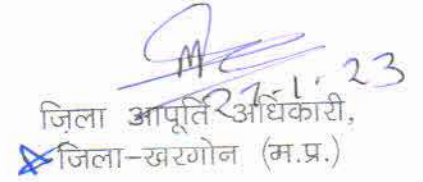 27.1.23
जिला आपूर्ति अधिकारी,
जिला-खरगोन (म.प्र.)